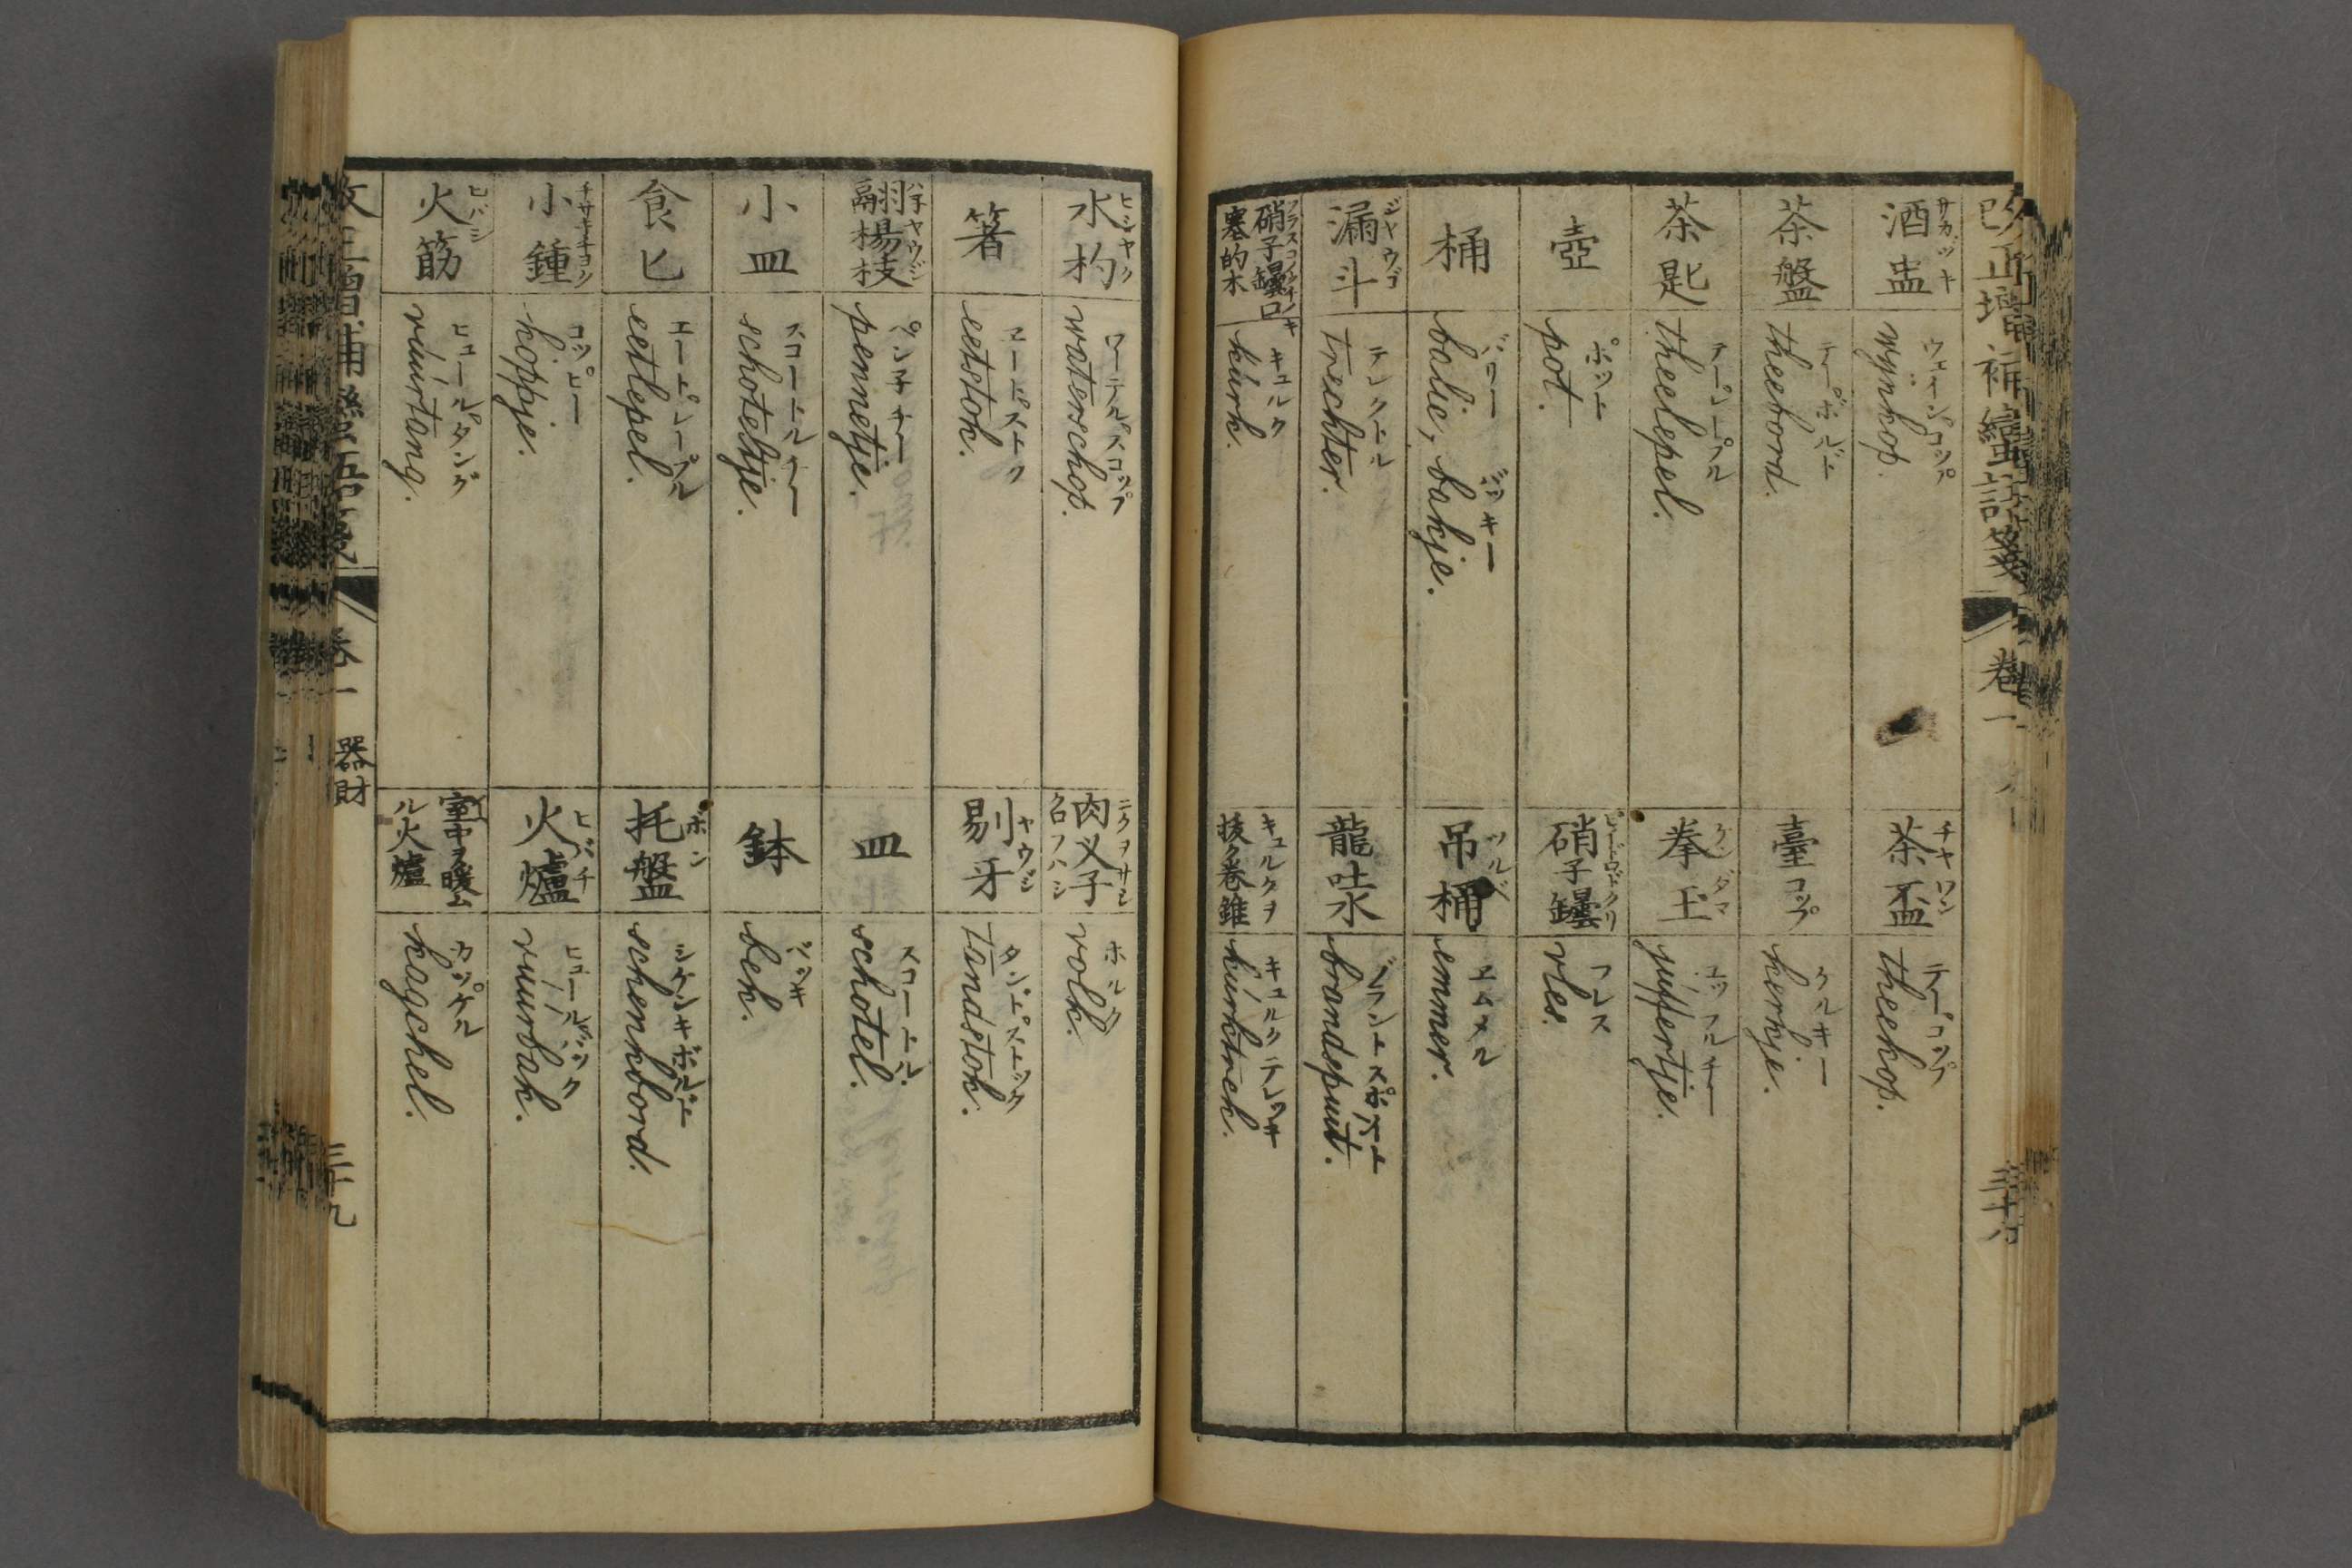 改正増補蠻語箋 卷一
酒盅 サカヅキ
wijnkop. ウェインコップ
茶盃 チヤワン
theekop. テーコップ
茶盤
theebord. テーボルド
臺コップ
kerkje. ケルキー
茶匙
theelepel. テーレープル
拳玉 ケンダマ
juffertje. ユッフルチー
壺
pot. ポット
硝子罎 ビードロドクリ
vles. フレス
桶
balie, bakje. バリー バッキー
吊桶 ツルベ
emmer. エムメル
漏斗 ジヤウゴ
trechter. テレクトル
龍吐水
brandspuit. ブランドスポイト
硝子罎口塞的木
kúrk. キュルク
拔ク卷錐 キュルクヲ
kúrktrek. キュルクテレッキ
水杓 ヒシヤク
waterschop. ワーテルスコップ
肉叉子 ニクヲサシ
volk. ホルク
箸
eetstok. エートストク
剔牙 ヤウジ
tandstok. タンドストック
翮楊枝 ハネヤウジ
pennetje. ペンネチー
皿
schotel. スコートル
小皿
schoteltje. スコートルチー
鉢
bek. ベッキ
食匕
eetlepel. エートレープル
托盤 ボン
schenkbord. シケンキボルド
小鍾 チサキチヨク
kopje. コッピー
火爐 ヒバチ
vuurbak. ヒュールバック
火筯 ヒバシ
vúúrtang. ヒュールタング
室中ヲ暖ムル火爐
kagchel. カッケル
卷一 器財
三十九